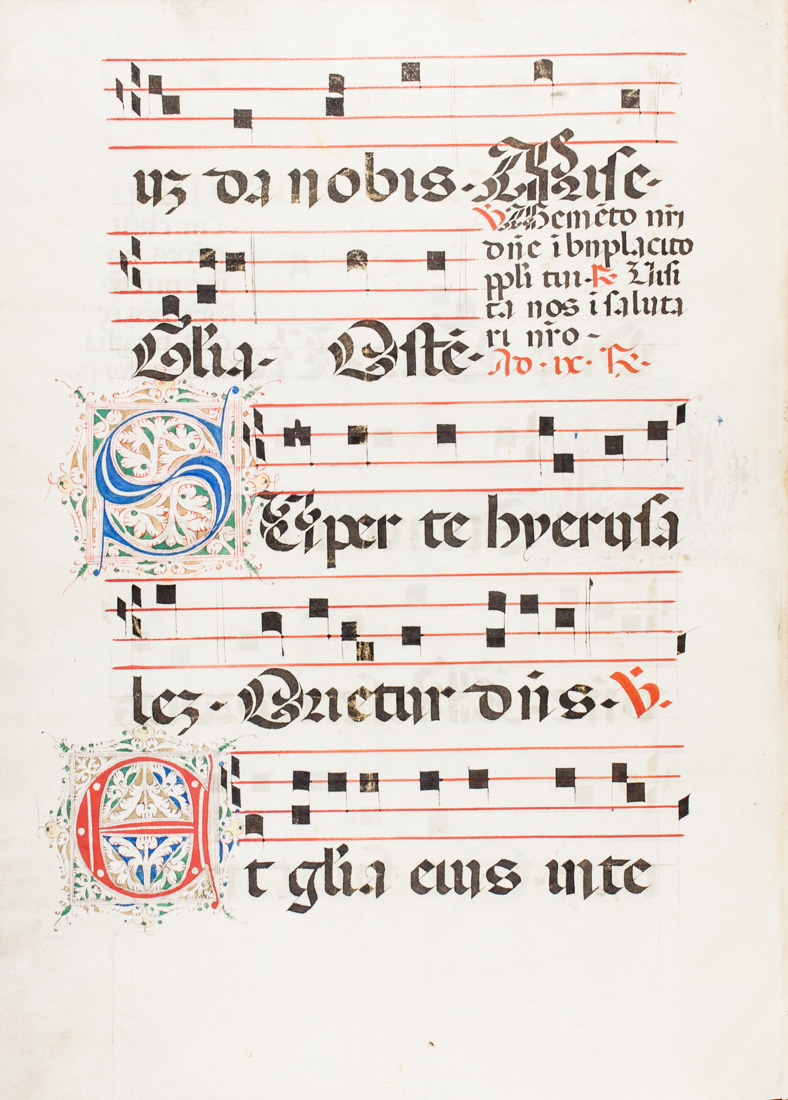 uʒ da nobis. Mise-
℣ Memēto nr̄i
dn̄e ī bn̄placito
ppl̓i tui. ℟. Uisi
ta nos ī saluta
ri nr̄o -
Gl̓ia. Ostē.
Ad. ix. ℟.
Super te hyerusa
lez. Orietur dn̄s. ℣.
Et gl̓ia eius in te